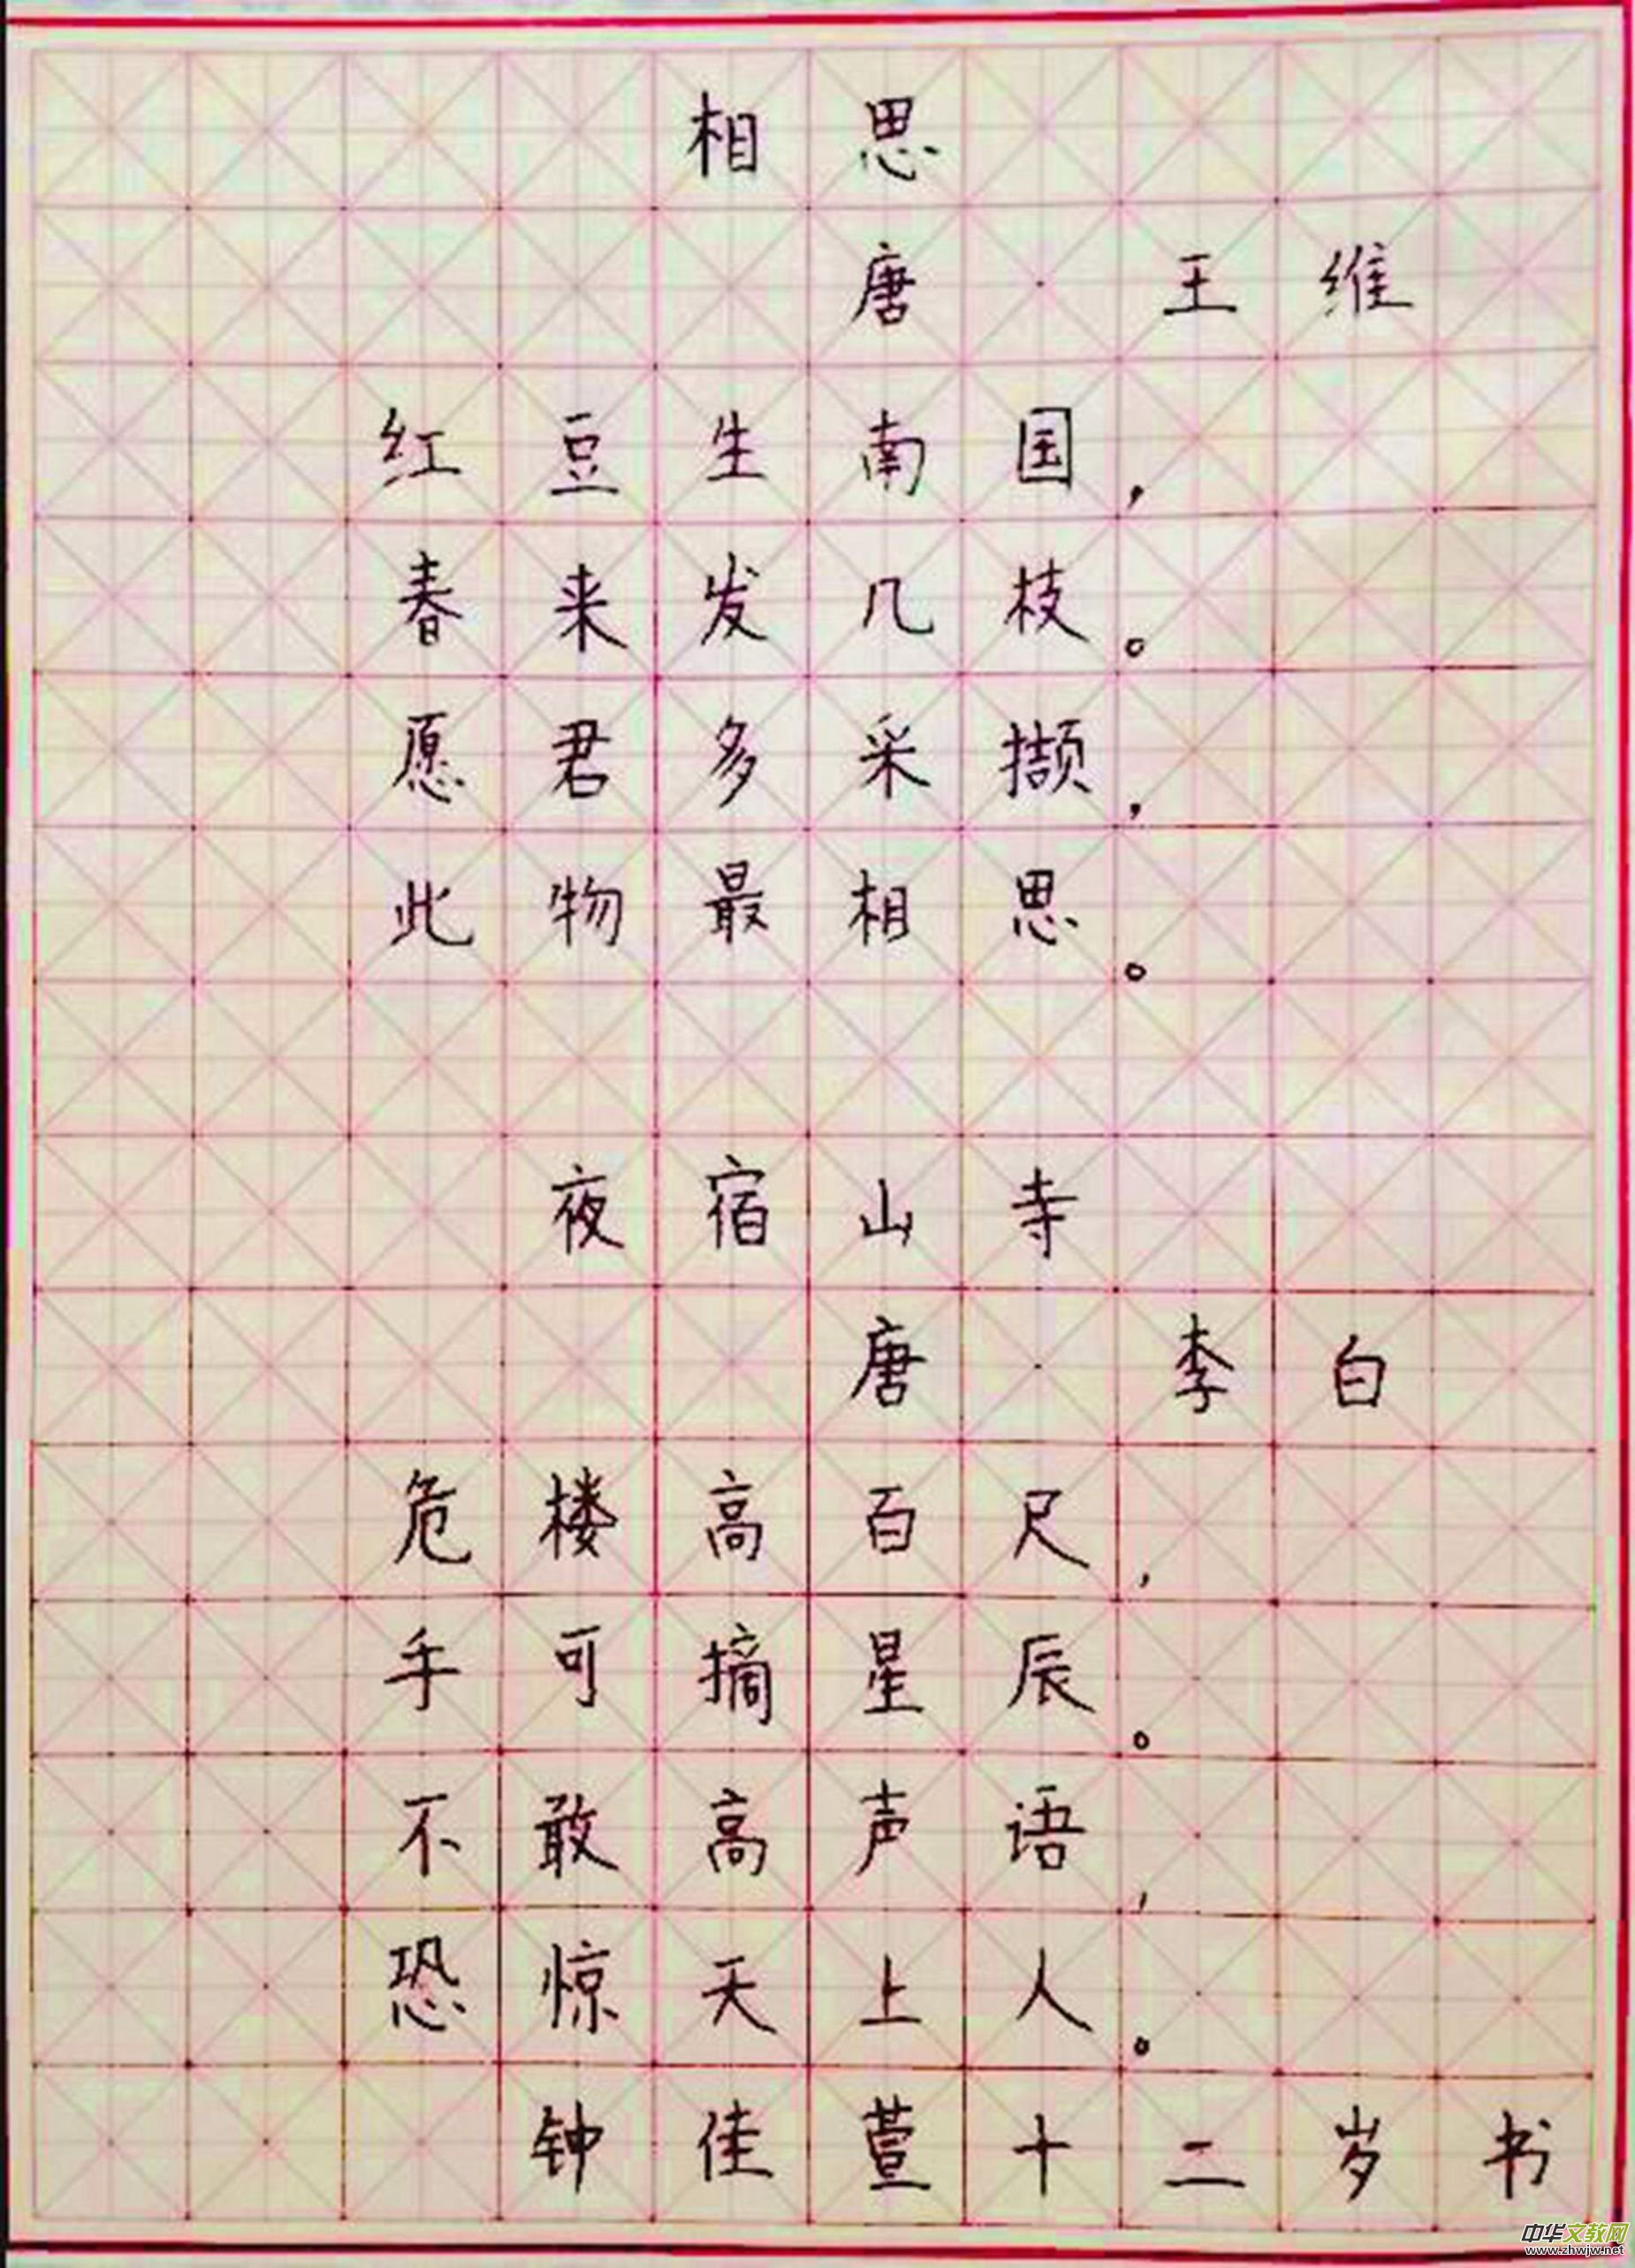 相思
唐·王维
红豆生南国，
春来发几枝。
愿君多采撷，
此物最相思。
夜宿山寺
唐·李白
危楼高百尺，
手可摘星辰。
不敢高声语，
恐惊天上人。
钟佳萱十二岁书
中华文教网
www.zhwjw.net